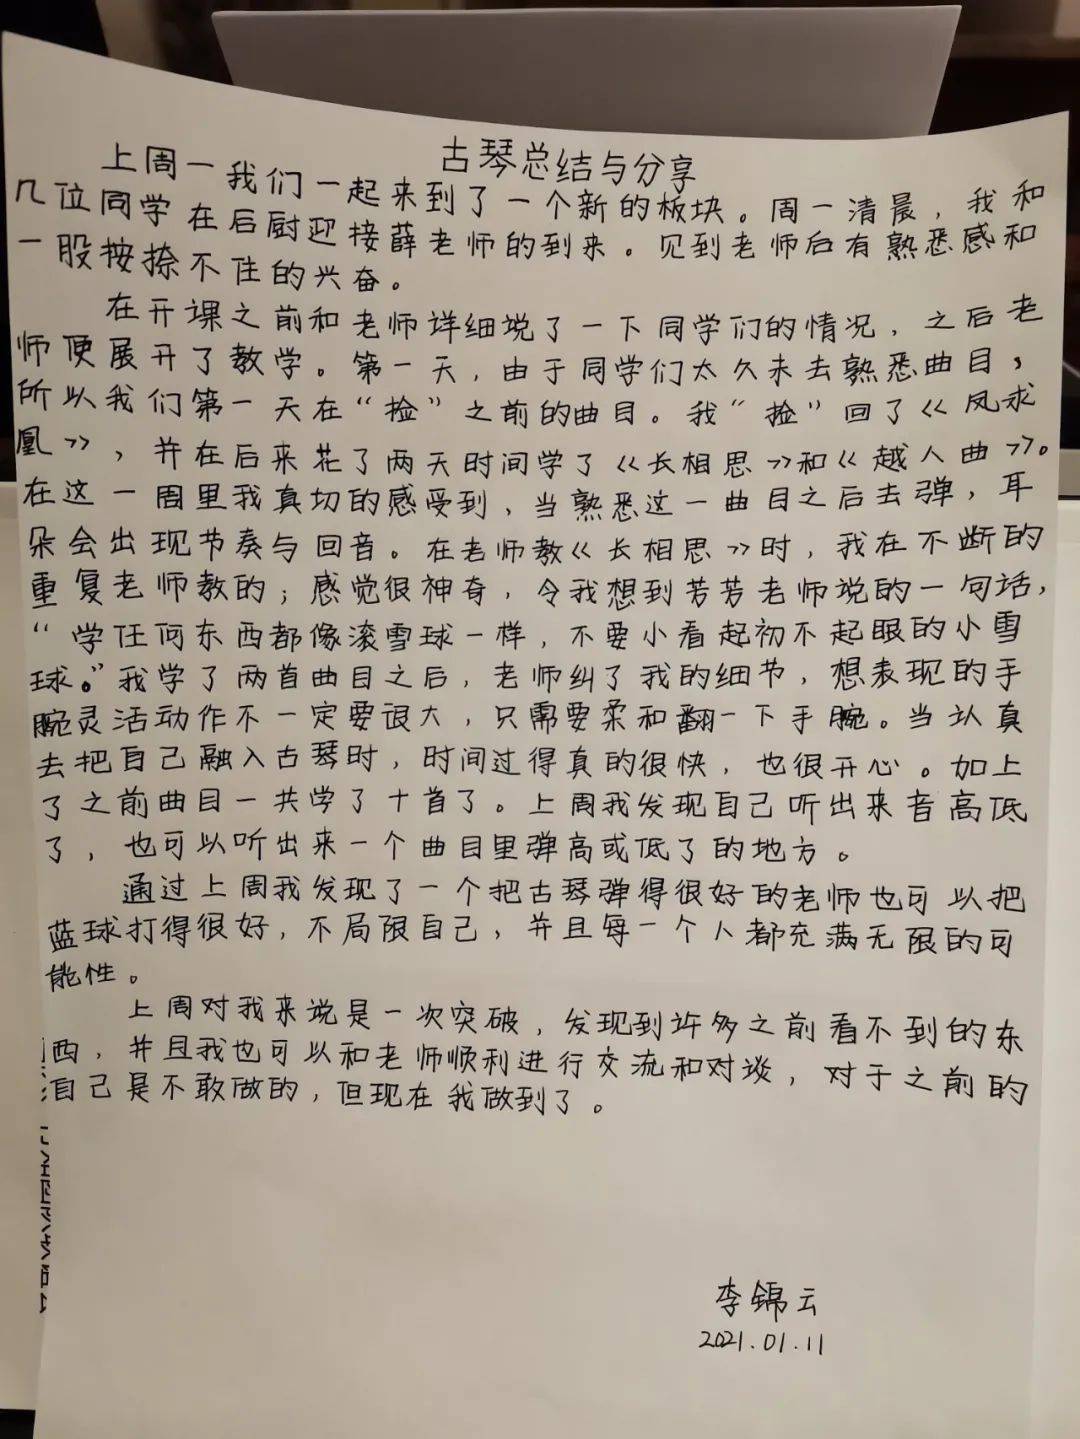 古琴总结与分享
上周一我们一起来到了一个新的板块。周一清晨，我和
几位同学在后厨迎接薛老师的到来。见到老师后有熟悉感和
一股按捺不住的兴奋。
在开课之前和老师详细说了一下同学们的情况，之后老
师便展开了教学。第一天，由于同学们太久未去熟悉曲目，
所以我们第一天在“捡”之前的曲目。我“捡”回了《凤求
凰》，并在后来花了两天时间学了《长相思》和《越人曲》。
在这一周里我真切的感受到，当熟悉这一曲目之后去弹，耳
朵会出现节奏与回音。在老师教《长相思》时，我在不断的
重复老师教的；感觉很神奇，令我想到芳芳老师说的一句话，
“学任何东西都像滚雪球一样，不要小看起初不起眼的小雪
球。”我学了两首曲目之后，老师纠了我的细节，想表现的手
腕灵活动作不一定要很大，只需要柔和翻一下手腕。当认真
去把自己融入古琴时，时间过得真的很快，也很开心。加上
了之前曲目一共学了十首了。上周我发现自己听出来音高低
了，也可以听出来一个曲目里弹高或低了的地方。
通过上周我发现了一个把古琴弹得很好的老师也可以把
蓝球打得很好，不局限自己，并且每一个人都充满无限的可
能性。
上周对我来说是一次突破，发现到许多之前看不到的东
西，并且我也可以和老师顺利进行交流和对谈，对于之前的
自己是不敢做的，但现在我做到了。
李锦云
2021.01.11